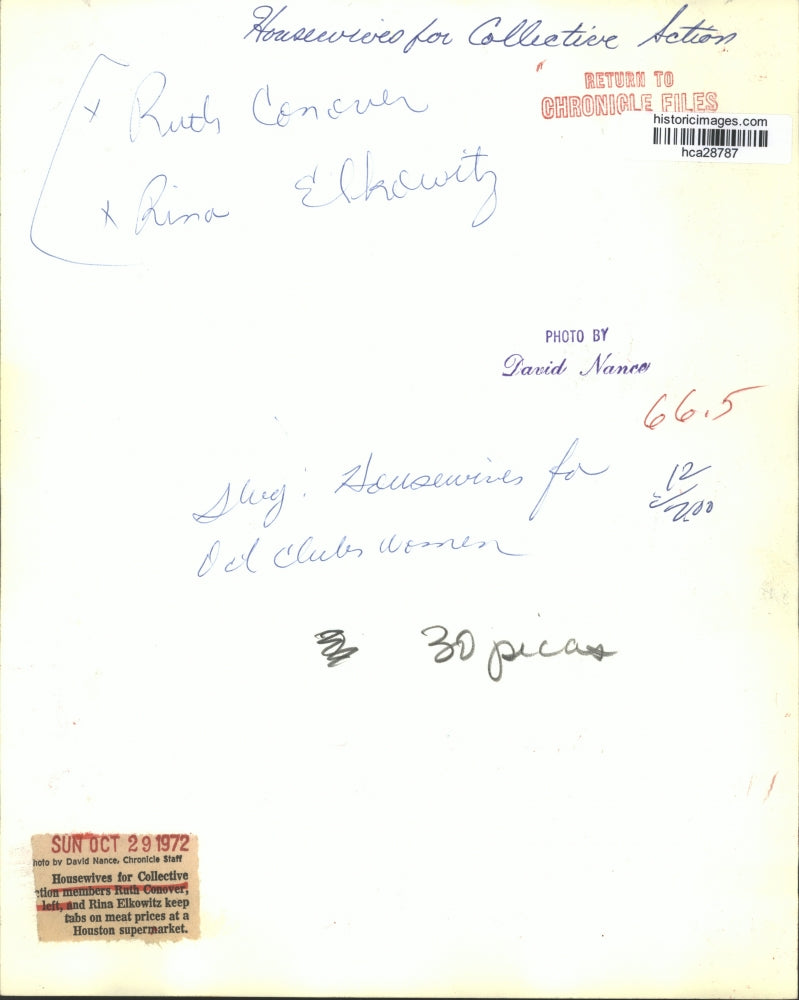 Housewives for Collective Action
RETURN TO
CHRONICLE FILES
historicimages.com
hca28787
x Ruth Conover
x Rina Elkowitz
PHOTO BY
David Nance
66.5
Slug: Housewives for
12
Od clubs women
30 picas
SUN OCT 29 1972
hoto by David Nance, Chronicle Staff
Housewives for Collective
ction members Ruth Conover,
left, and Rina Elkowitz keep
tabs on meat prices at a
Houston supermarket.